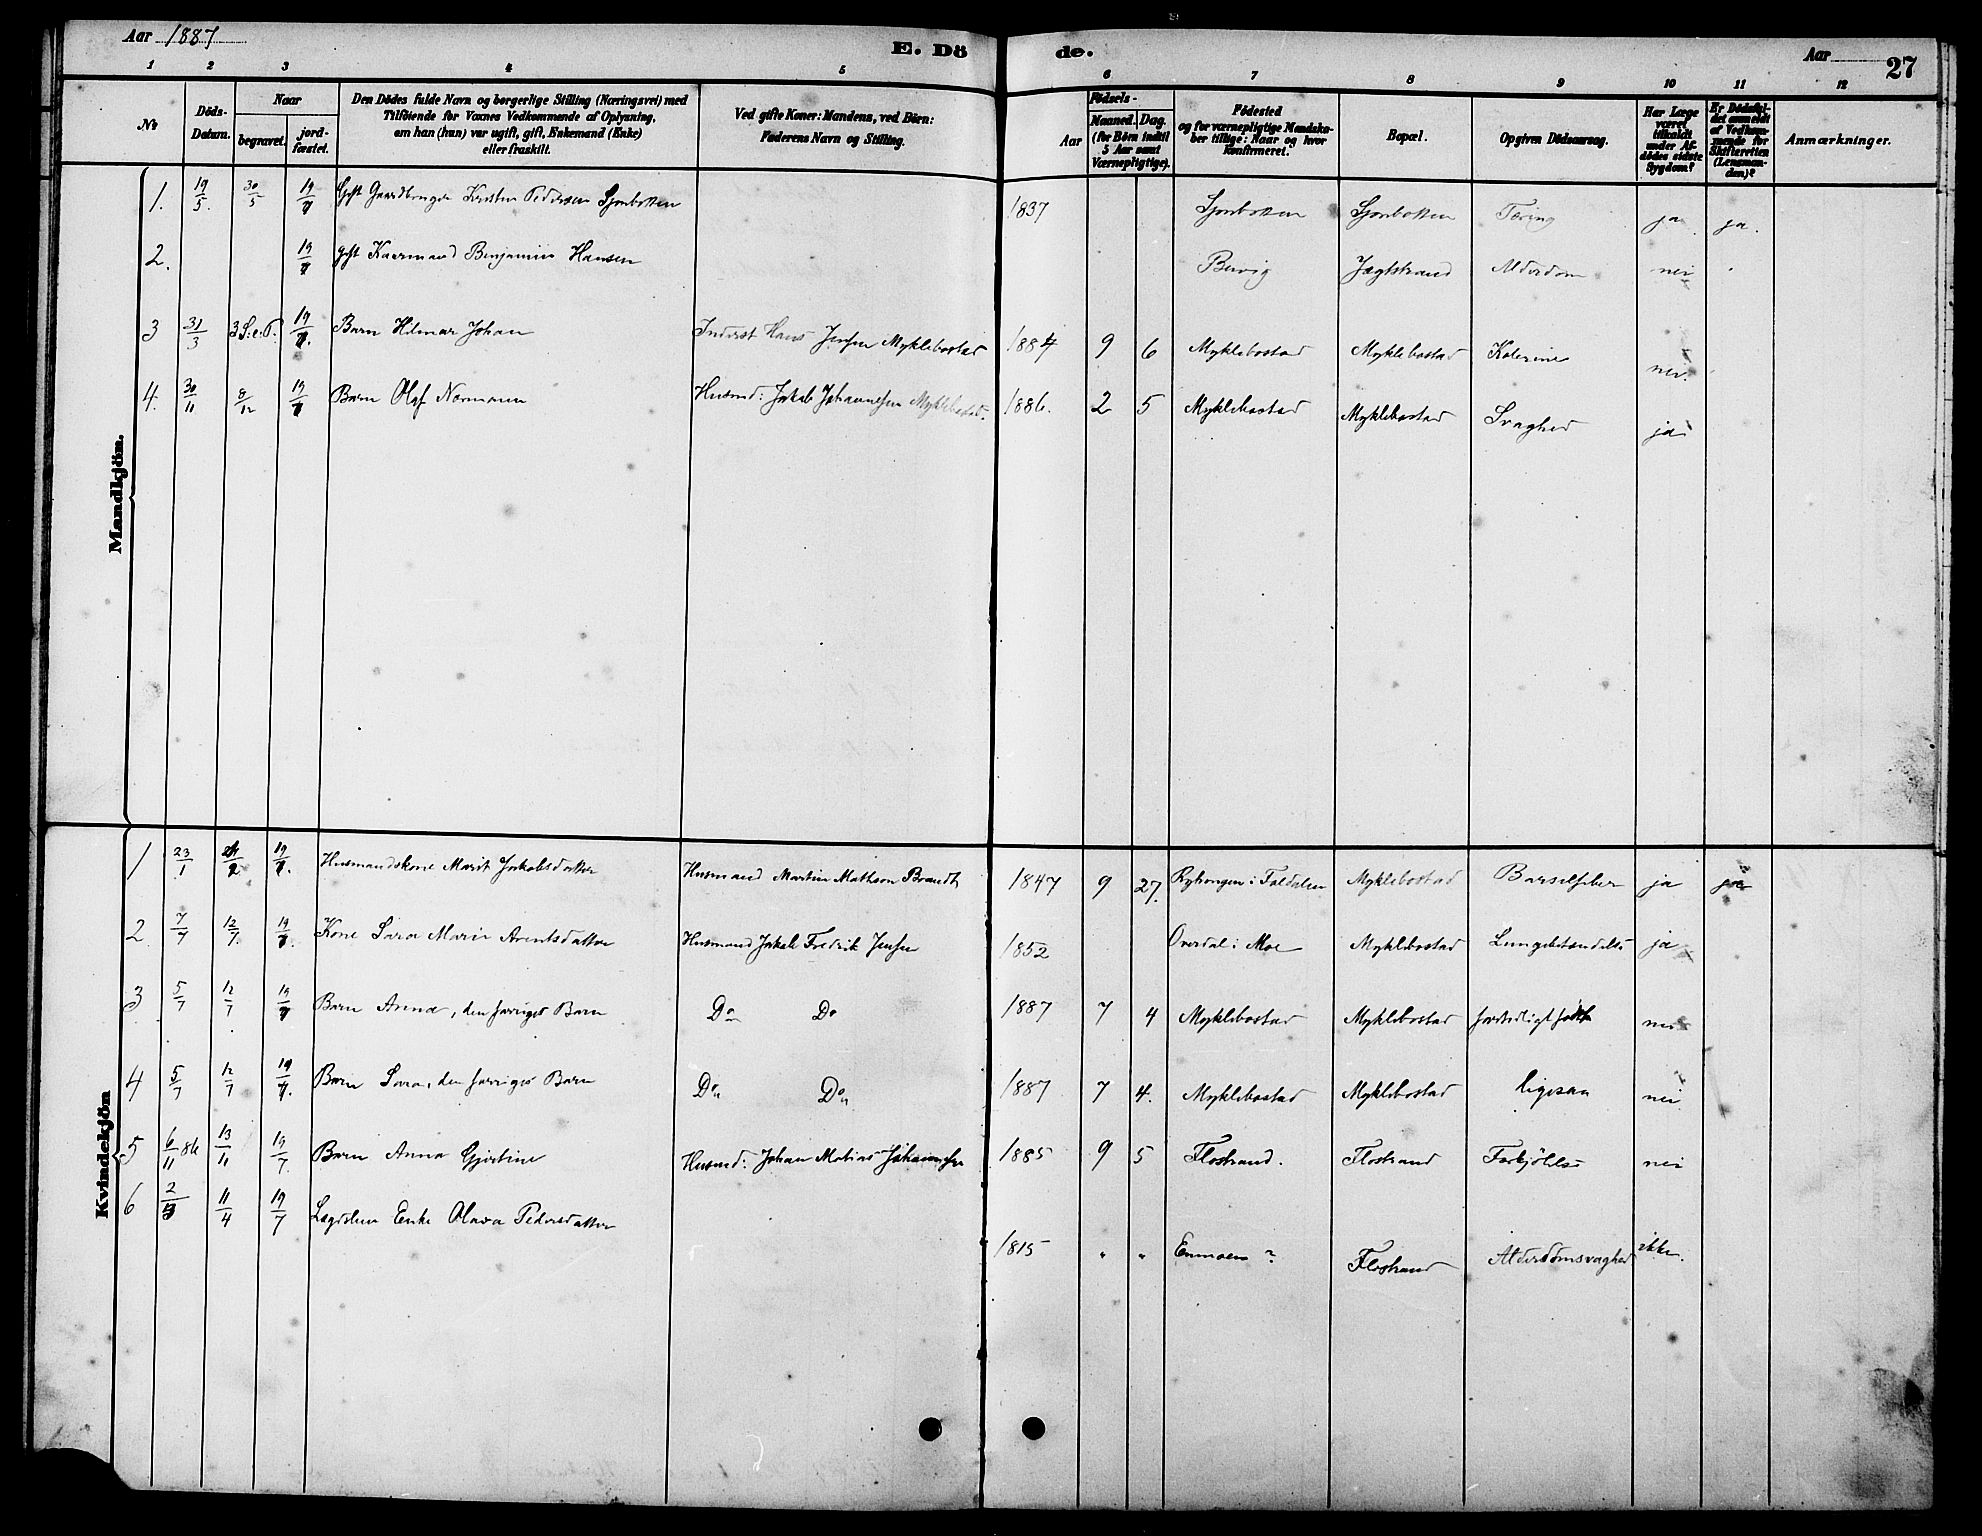 Aar 1887
E. Dö de.
Aar 27
1 2 3 4 5 6 7 8 9 10 11 12
No
Döds-Datum.
Naar
begravet.
jord-fæstet.
Den Dödes fulde Navn og borgerlige Stilling (Næringsvei) med
Tilföiende for Voxnes Vedkommende af Oplysning,
om han (hun) var ugift, gift, Enkemand (Enke)
eller fraskilt.
Ved gifte Koner: Mandens, ved Börn:
Faderens Navn og Stilling.
Aar
Födsels-
Maaned. Dag.
(for Börn indtil
5 Aar samt
Værnepligtige).
Födested
og for værnepligtige Mandska-
ber tillige: Naar og hvor
konfirmeret.
Bopæl.
Opgiven Dödsaarsag.
Har Læge
været
tilkaldt
under Af-
dödes sidste
Sygdom?
Er Dödsfal-
det anmeldt
af Vedkom-
mende for
Skifteretten
(Lensman-
den)?
Anmærkninger.
Mandkjön.
1. 19/5. 30/5 19/7 Gift Gaardbruger Kristen Pedersen Sjonbotten 1837 Sjonbotten Sjonbotten Tæring ja ja.
2. 19/7 gift Kaarmand Benjamin Hansen Jægtstrand Alderdom nei
3 31/3 3 S: e. P. 19/7. Barn Hilmar Johan Inderst Hans Jensen Myklebostad 1884 9 6 Myklebostad Myklebostad nei.
4. 30/11 8/12 19/7 Barn Olaf Normann Husmd: Jakob Johannesen Myklebostad. 1886. 2 5 Myklebostad Myklebostad Svaghed ja
Kvindekjön
1 23/1 19/7. Husmandskone Marit Jakobsdatter Husmand Martin Mathson Brandt 1847 9 27. Myklebostad Barselfeber ja ja
2 7/7 12/7 19/7. Kone Sara Marie Arentsdatter Husmand Jakob Fredrik Jensen 1852 Overdal i Moe Myklebostad Lungebetændelse ja
3 5/7 12/7 19/7 Barn Anna, den forriges Barn Do Do 1887 7 4 Myklebostad Myklebostad fortidligt født nei
4 5/7 12/7 19/7. Barn Sara, den forriges Barn Do Do 1887 7 4. Myklebostad Myklebostad ligesaa nei
5 6/11 86 13/11 19/7 Barn Anna Gjertine Husmd: Johan Matias Johannesen 1885 9 5 Flostrand. Flostrand Forkjölelse nei
6 2/3 11/4 19/7 Lægdslem Enke Olava Pedersdatter 1815 " " Enmoen? Flostrand Alderdomsvaghed ikke.